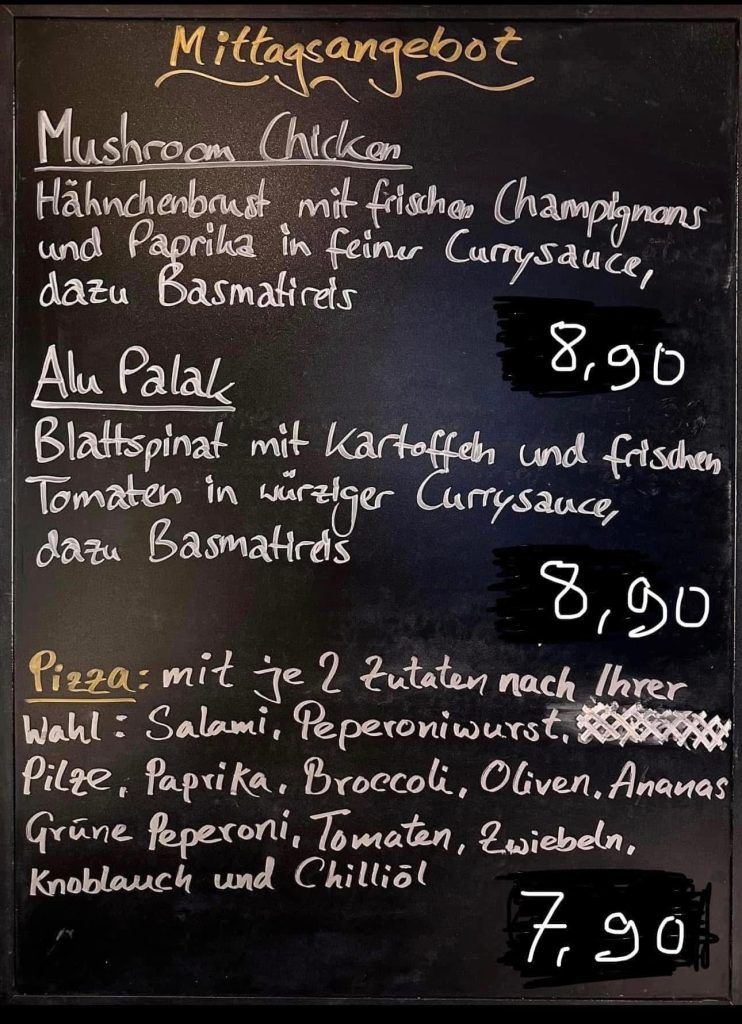 Mittagsangebot
Mushroom Chicken
Hähnchenbrust mit frischen Champignons
und Paprika in feiner Currysauce,
dazu Basmatireis
8,90
Alu Palak
Blattspinat mit Kartoffeln und frischen
Tomaten in würziger Currysauce,
dazu Basmatireis
8,90
Pizza: mit je 2 Zutaten nach Ihrer
Wahl: Salami, Peperoniwurst,
Pilze, Paprika, Broccoli, Oliven, Ananas
Grüne Peperoni, Tomaten, Zwiebeln,
Knoblauch und Chilliöl
7,90